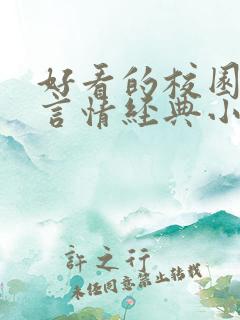 好看的校园
言情经典小
許之行
未经同意禁止转载